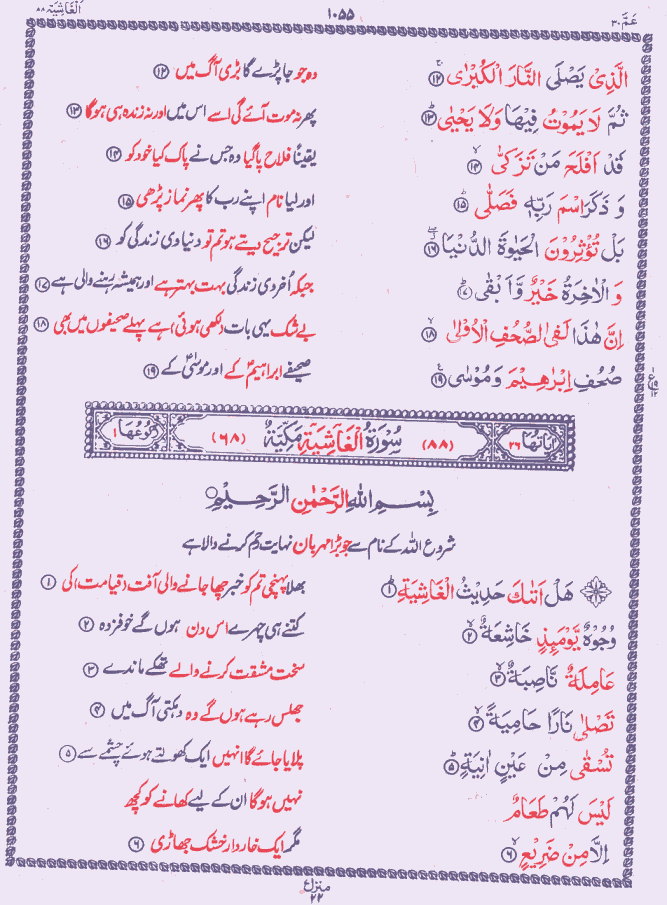 عَمَّ ٣٠ ١٠٥٥ اَلْغَاشِيَة ٨٨
الَّذِىْ يَصْلَى النَّارَ الْكُبْرٰى ﴿١٢﴾ وہ جو جا پڑے گا بڑی آگ میں ﴿١٢﴾
ثُمَّ لَا يَمُوْتُ فِيْهَا وَلَا يَحْيٰى ﴿١٣﴾ پھر نہ موت آئے گی اسے اس میں اور نہ زندہ ہی ہوگا ﴿١٣﴾
قَدْ اَفْلَحَ مَنْ تَزَكّٰى ﴿١٤﴾ یقیناً فلاح پا گیا وہ جس نے پاک کیا خود کو ﴿١٤﴾
وَ ذَكَرَ اسْمَ رَبِّهٖ فَصَلّٰى ﴿١٥﴾ اور لیا نام اپنے رب کا پھر نماز پڑھی ﴿١٥﴾
بَلْ تُؤْثِرُوْنَ الْحَيٰوةَ الدُّنْيَا ﴿١٦﴾ لیکن ترجیح دیتے ہو تم تو دنیاوی زندگی کو ﴿١٦﴾
وَ الْاٰخِرَةُ خَيْرٌ وَّ اَبْقٰى ﴿١٧﴾ جبکہ اُخروی زندگی بہت بہتر ہے اور ہمیشہ رہنے والی ہے ﴿١٧﴾
اِنَّ هٰذَا لَفِى الصُّحُفِ الْاُوْلٰى ﴿١٨﴾ بے شک یہی بات لکھی ہوئی ہے پہلے صحیفوں میں بھی ﴿١٨﴾
صُحُفِ اِبْرٰهِيْمَ وَ مُوْسٰى ﴿١٩﴾ صحیفے ابراہیمؑ کے اور موسٰیؑ کے ﴿١٩﴾
اٰيَاتُهَا ٢٦ (٨٨) سُوْرَةُ الْغَاشِيَةِ مَكِّيَّةٌ (٦٨) رُكُوْعُهَا ١
بِسْمِ اللهِ الرَّحْمٰنِ الرَّحِيْمِ
شروع اللہ کے نام سے جو بڑا مہربان نہایت رحم کرنے والا ہے
هَلْ اَتٰىكَ حَدِيْثُ الْغَاشِيَةِ ﴿١﴾ بھلا پہنچی تم کو خبر چھا جانے والی آفت (قیامت) کی ﴿١﴾
وُجُوْهٌ يَّوْمَىِٕذٍ خَاشِعَةٌ ﴿٢﴾ کتنے ہی چہرے اس دن ہوں گے خوفزدہ ﴿٢﴾
عَامِلَةٌ نَّاصِبَةٌ ﴿٣﴾ سخت مشقت کرنے والے تھکے ماندے ﴿٣﴾
تَصْلٰى نَارًا حَامِيَةً ﴿٤﴾ جھلس رہے ہوں گے وہ دہکتی آگ میں ﴿٤﴾
تُسْقٰى مِنْ عَيْنٍ اٰنِيَةٍ ﴿٥﴾ پلایا جائے گا انہیں ایک کھولتے ہوئے چشمے سے ﴿٥﴾
لَيْسَ لَهُمْ طَعَامٌ نہیں ہوگا ان کے لیے کھانے کو کچھ
اِلَّا مِنْ ضَرِيْعٍ ﴿٦﴾ مگر ایک خاردار خشک جھاڑی ﴿٦﴾
منزل ٢٢